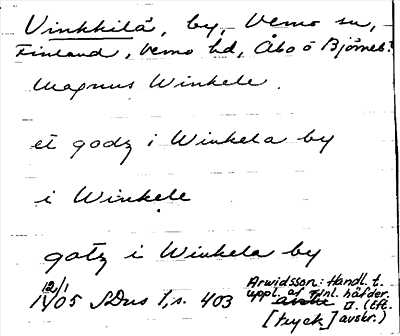 Vinkkilä, by, Vemo sn,
Finland, Vemo hd, Åbo o Björneb.
Magnus Winkele.
et godz i Winkela by
i Winkele
gotz i Winkela by
12/1
1405 SDns 1, s. 403
Arwidsson: Handl. t.
uppl. af Finl. häfder
(Eft. avskr.)
[tryck]